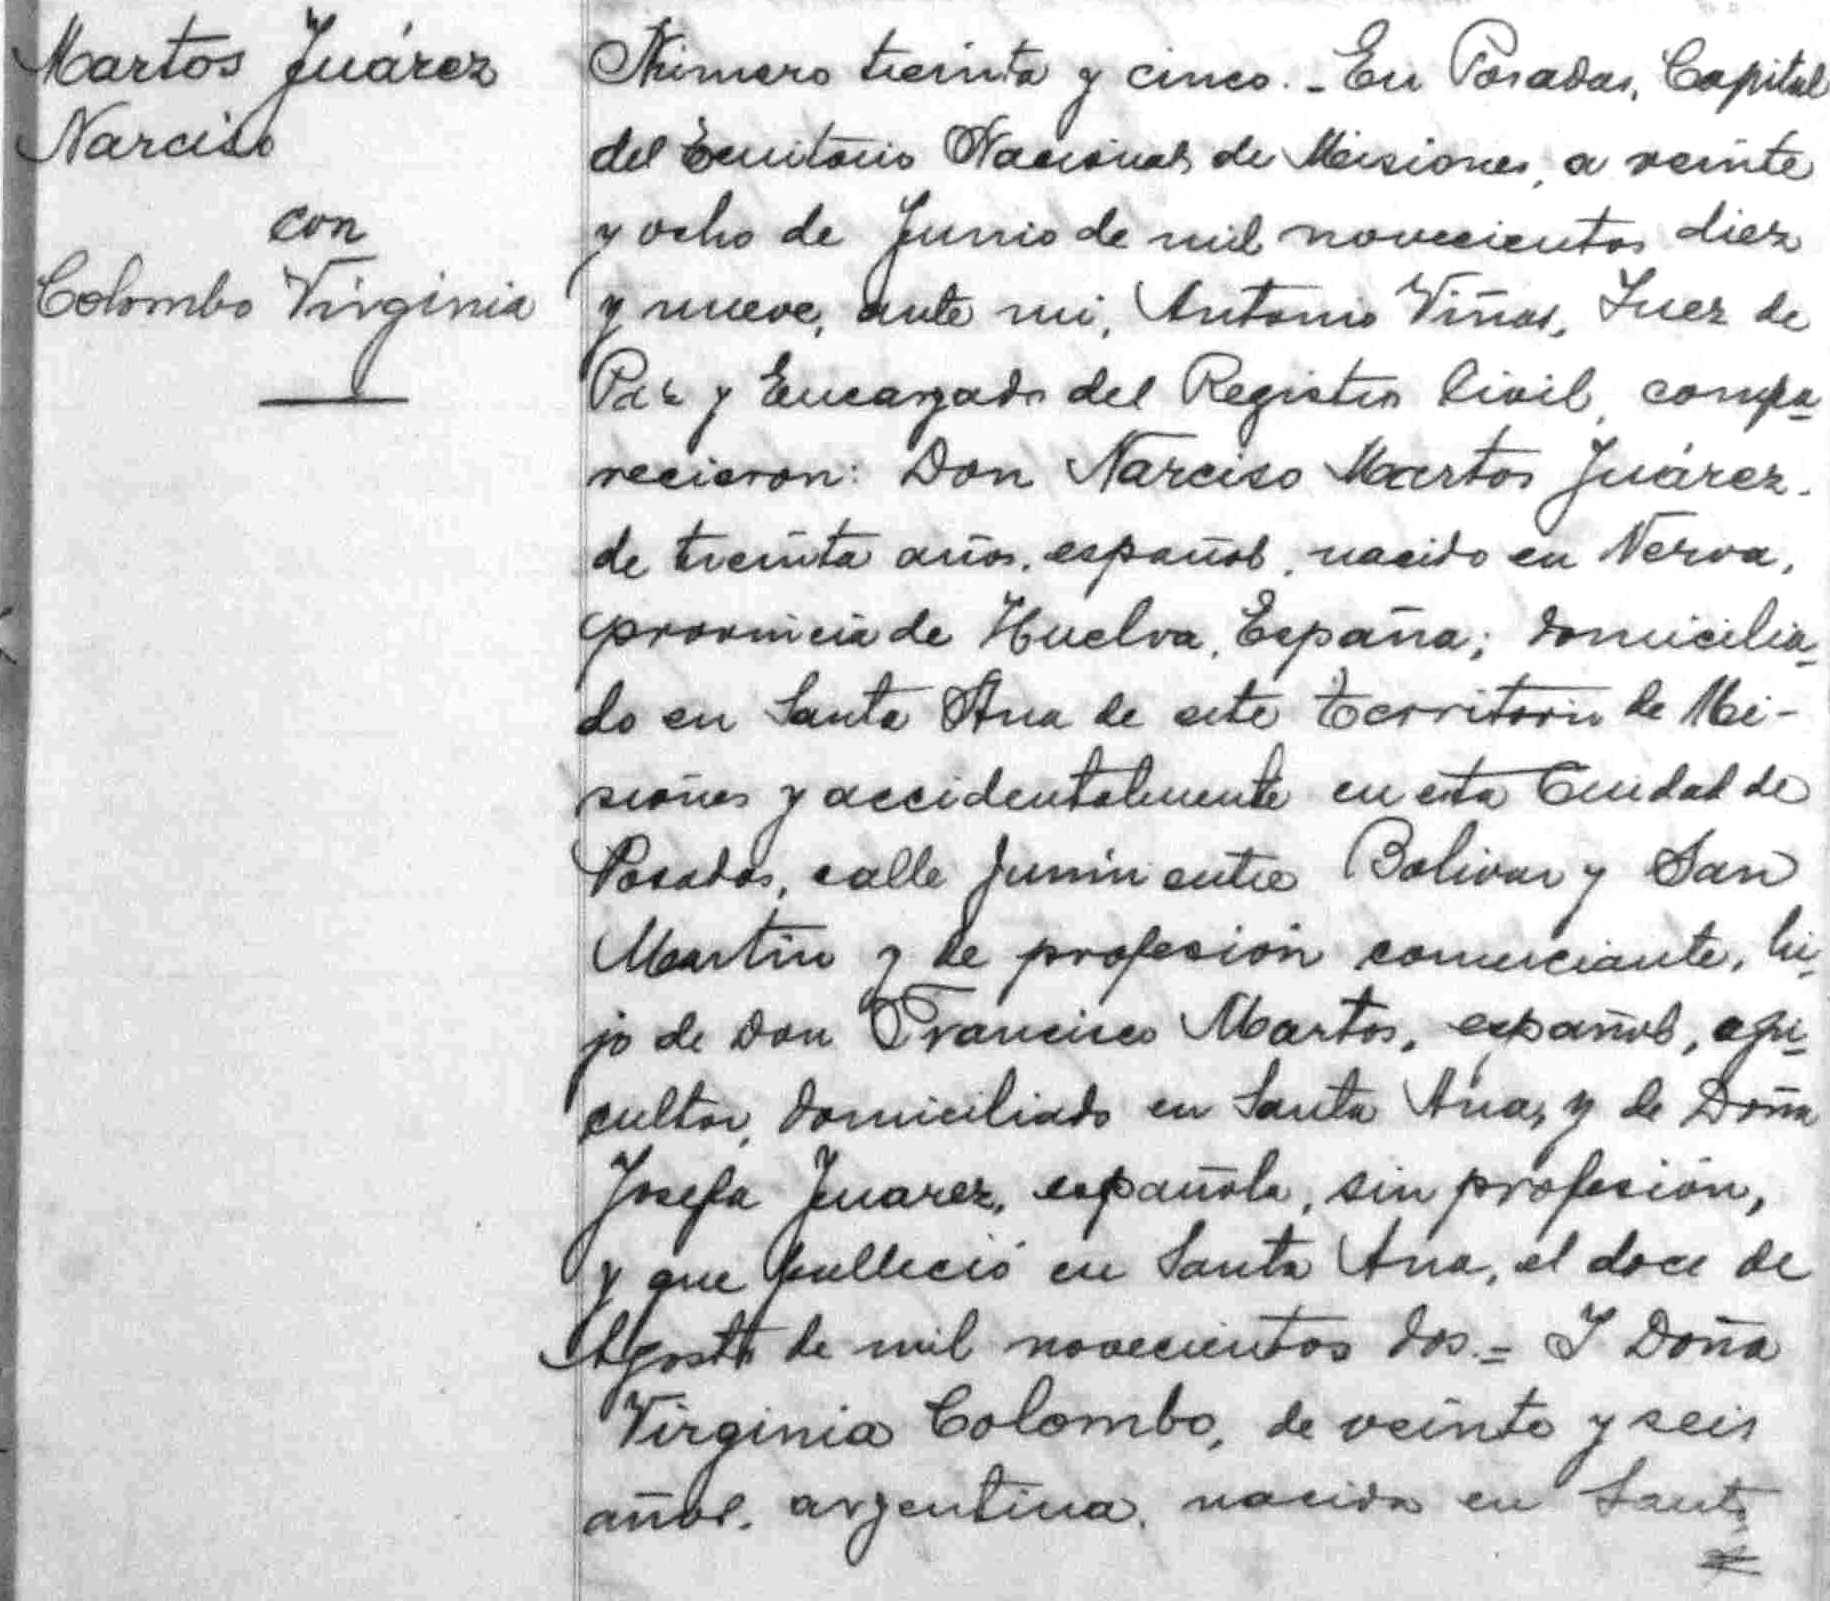 Martos Juárez
Narciso
con
Colombo Virginia
Número treinta y cinco. - En Posadas, Capital
del Territorio Nacional de Misiones, a veinte
y ocho de Junio de mil novecientos diez
y nueve, ante mi, Antonio Viñas, Juez de
Paz y Encargado del Registro Civil, compa-
recieron: Don Narciso Martos Juárez.
de treinta años, español, nacido en Nerva,
provincia de Huelva, España; domicilia-
do en Santa Ana de este Territorio de Mi-
siones y accidentalmente en esta Ciudad de
Posadas, calle Junín entre Bolivar y San
Martín y de profesión comerciante, hi-
jo de Don Francisco Martos, español, agri-
cultor, domiciliado en Santa Ana, y de Doña
Josefa Juarez, española, sin profesión,
y que falleció en Santa Ana, el doce de
Agosto de mil novecientos dos.= Y Doña
Virginia Colombo, de veinte y seis
años, argentina, nacida en Santa